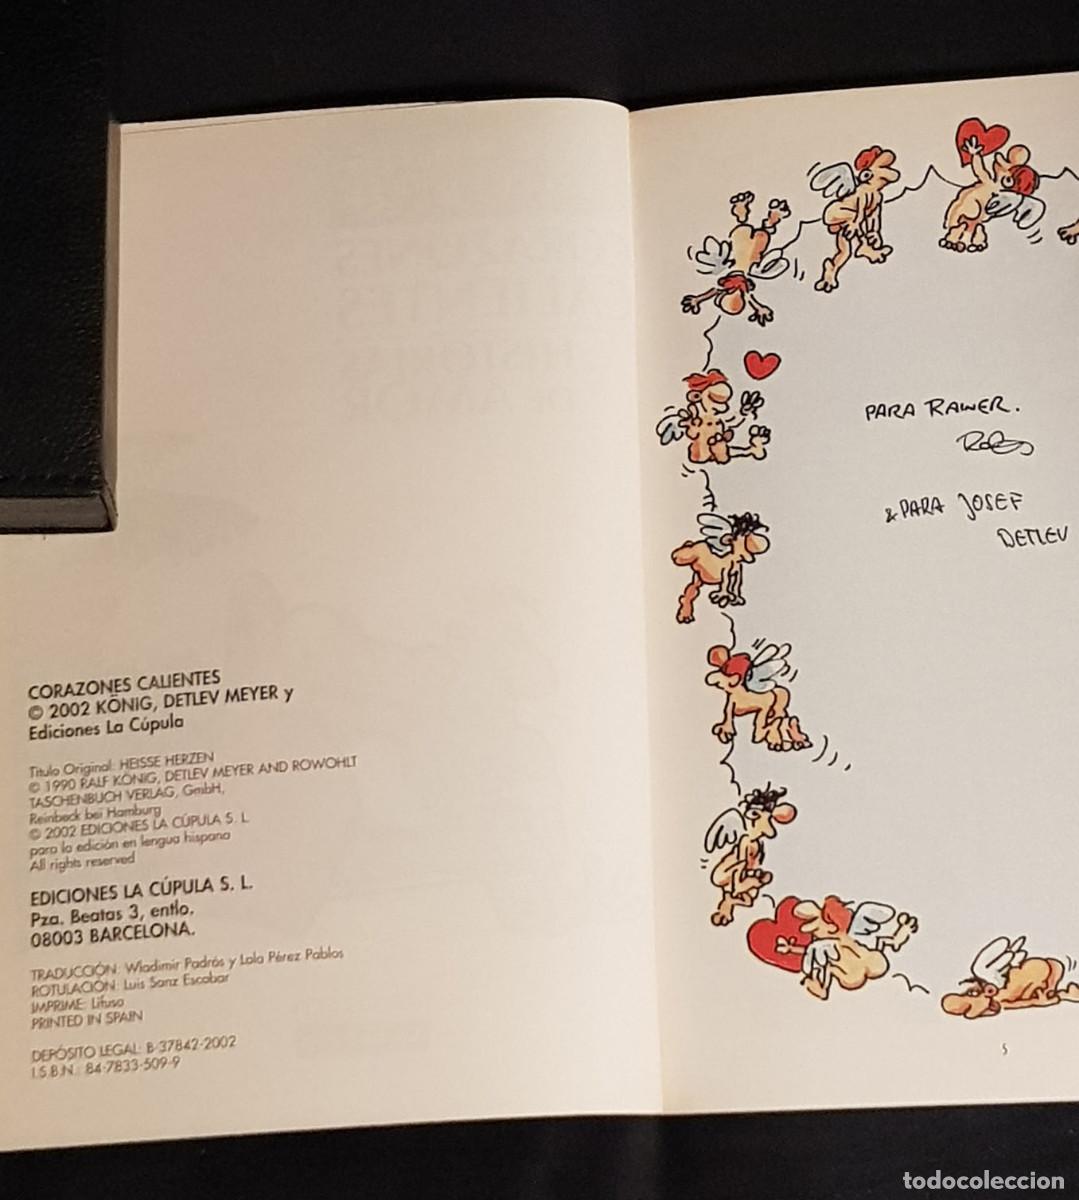 CORAZONES CALIENTES
© 2002 KÖNIG, DETLEV MEYER y
Ediciones La Cúpula
Titulo Original: HEISSE HERZEN
© 1990 RALF KÖNIG, DETLEV MEYER AND ROWOHLT
TASCHENBUCH VERLAG, GmbH,
Reinbeck bei Hamburg
© 2002 EDICIONES LA CÚPULA S. L.
para la edición en lengua hispana
All rights reserved
EDICIONES LA CÚPULA S. L.
Pza. Beatas 3, entlo.
08003 BARCELONA.
TRADUCCIÓN: Wladimir Padrós y Lola Pérez Pablos
ROTULACIÓN: Luis Sanz Escobar
IMPRIME: Lifusa
PRINTED IN SPAIN
DEPÓSITO LEGAL: B-37842-2002
I.S.B.N.: 84-7833-509-9
PARA RAINER.
& PARA JOSEF
DETLEV
5
todocoleccion